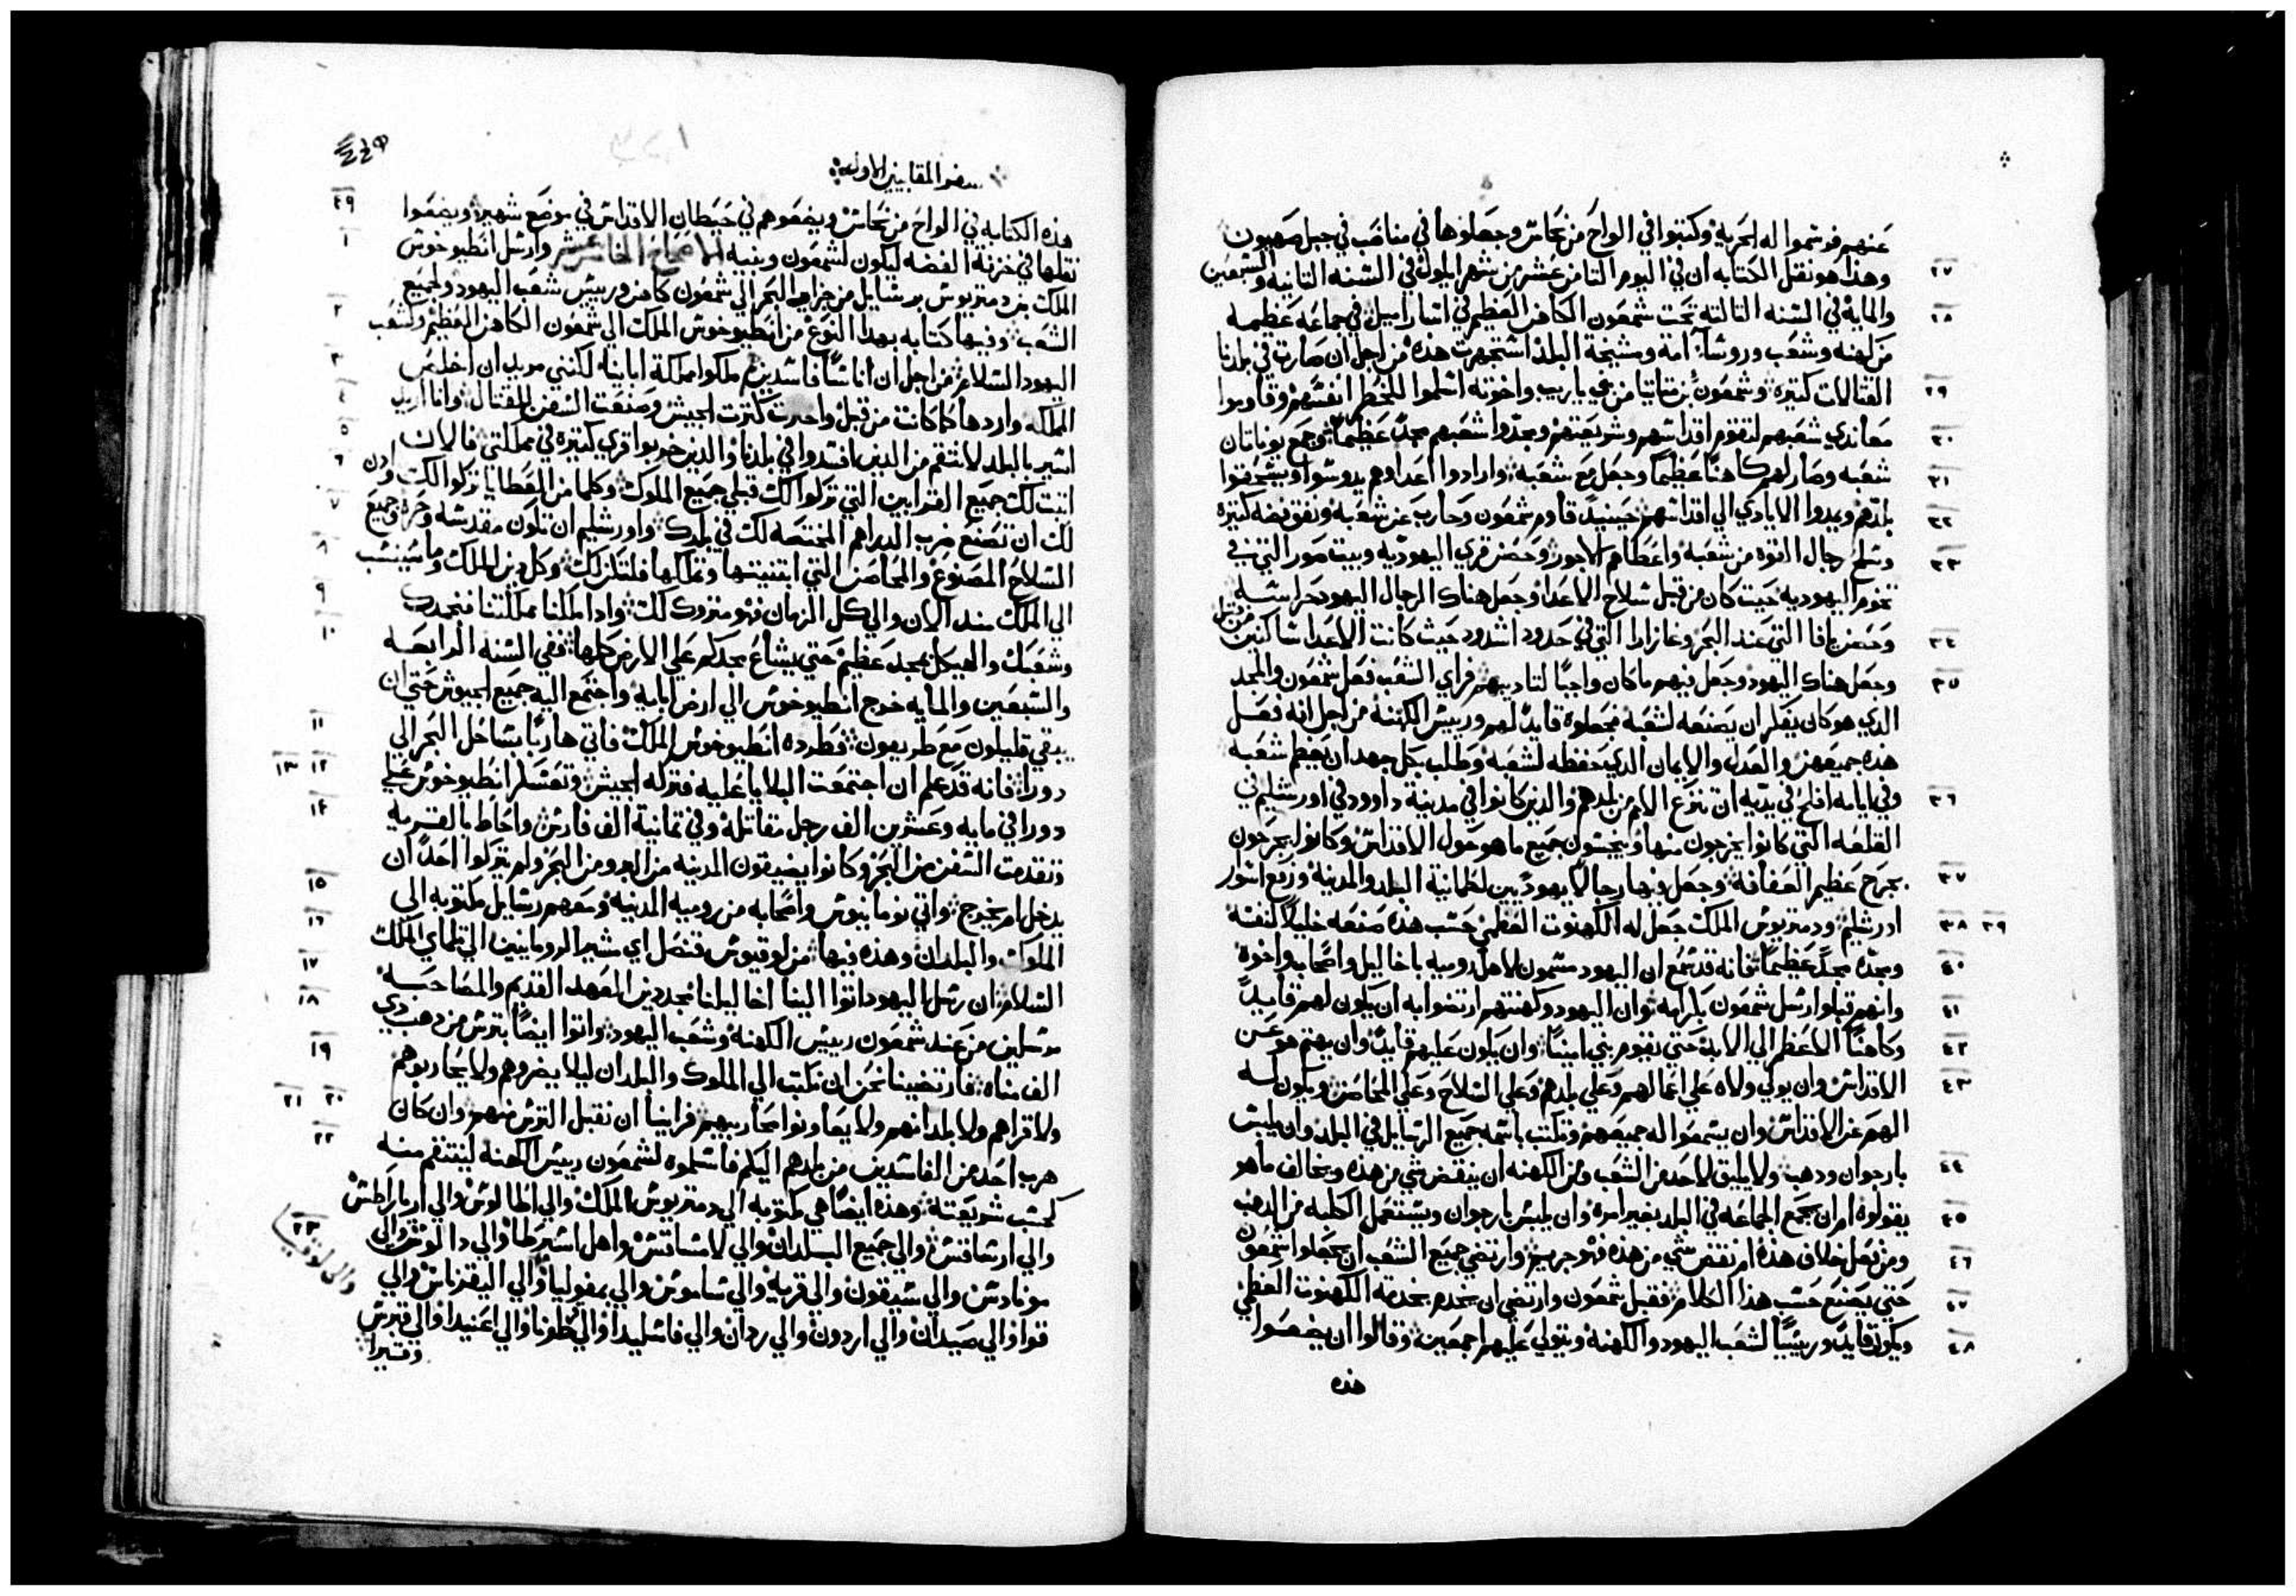 عنهم فوتموا له الحرية وكتبوا في الواح من نحاس وجعلوها في مناصب في جبل صهيون
٢٧ وهذا هو نقل الكتابه ان في اليوم الثامن عشر من شهر ايلول في السنه الثانيه والسبعين
٢٨ والمايه في السنه الثالثه تحت شمعون الكاهن العظيم في اساراميل في جماعه عظيمه
من كهنه وشعب وروسا امه ومشيخة البلد اشتهرت هذه من اجل ان صارت في بلدنا
٢٩ القتالات كثيره وشمعون بن متاتيا من بني ياريب واخوته اسلموا للخطر انفسهم وقاوموا
٣٠ معاندي شعبهم لتقوم اقداسهم وشريعتهم ومجدوا شعبهم مجدًا عظيمًا وجمع يوناتان
٣١ شعبه وصار لهم كاهنًا عظيمًا وجعل مع شعبه وارادوا اعداوهم يدوسوا ويسحقوا
٣٢ بلدهم ويمدوا الايادي الي اقداسهم حينيدٍ قاوم شمعون وحارب عن شعبه ونفق فضه كثيره
٣٣ وسلح رجال القوه من شعبه واعطاهم الاجور وحصن قري اليهوديه وبيت صور التي في
تخوم اليهوديه حيث كان من قبل سلاح الاعدا وجعل هناك الرجال اليهود حراسه
٣٤ وحصن يافا التي عند البحر وغازارا التي في حدود اشدود حيث كانت الاعدا ساكنين من قبل
٣٥ وجعل هناك اليهود وجعل فيهم ما كان واجبًا لتاديبهم فراي الشعب فعل شمعون والمجد
الذي هو كان يفكر ان يصنعه لشعبه فجعلوه قايدًا لهم ورييس الكهنه من اجل انه فعل
هذه جميعهن والعدل والايمان الذي حفظه لشعبه وطلب بكل جهد ان يعظم شعبه
٣٦ وفي ايامه افلح في يديه ان تنزع الامم من بلدهم والدين كانوا في مدينة داوود في اورشليم في
القلعه التي كانوا يخرجون منها وينجسون جميع ما هو حول الاقداس وكانوا يجرحون
٣٧ بجرح عظيم العفافه وجعل فيها رجالًا يهوديين لطمانية البلد والمدينه ورفع اسوار
٣٨ ٣٩ اورشليم ودمتريوس الملك جعل له الكهنوت العظمي حسب هذه صنعه خليلًا لنفسه
٤٠ ومجده مجدًا عظيمًا فانه قد سمع ان اليهود مسمون لاهل روميه باخاليل واصحاب واخوه
٤١ وانهم قبلوا رسل شمعون بكرامه وان اليهود وكهنتهم ارتضوا به ان يكون لهم قايدًا
٤٢ وكاهنًا الاعظم الي الابد حتي يقوم نبي امينًا وان يكون عليهم قايدًا وان يهتم هو عن
٤٣ الاقداس وان يولي ولاه علي اعمالهم وعلي بلدهم وعلي السلاح وعلي المحاصن ويكون له
الهم عن الاقداس وان يسمعوا له جميعهم وتكتب باسمه جميع الرسايل في البلد وان يلبس
٤٤ بارجوان وذهب ولا يليق لاحد من الشعب ومن الكهنه ان ينقض شي من هذه ويخالف ما هو
٤٥ يقولوه او ان يجمع الجماعه في البلد بغير امره وان يلبس بارجوان ويستعمل الكلبه من الدهب
٤٦ ومن فعل خلاف هذه او نقض شي من هذه فهو جريم وارتضي جميع الشعب ان يجعلوا شمعون
٤٧ حتي يصنع حسب هذا الكلام فقبل شمعون وارتضي ان يخدم بخدمة الكهنوت العظمي
٤٨ ويكون قايدًا ورييسًا لشعب اليهود والكهنه ويتولي عليهم اجمعين وقالوا ان يضعوا
هذه
سفر المقابيين الاول
٤٩ هذه الكتابه في الواح من نحاس ويضعوهم في حيطان الاقداس في موضع شهير ويضعوا
١ نقلها في خزنة الفضه ليكون لشمعون وبنيه الاصحاح الخامس عشر وارسل انطيوخوس
الملك بن دمتريوس برسايل من جزاير البحر الي شمعون كاهن ورييس شعب اليهود ولجميع
٢ الشعب وفيها كتابه بهدا النوع من انطيوخوس الملك الي شمعون الكاهن العظيم ولشعب
٣ اليهود السلام من اجل ان اناسًا فاسدين ملكوا مملكة اباينا لكنني مريد ان اخلص
٤ المملكه واردها كما كانت من قبل واخدت كثرت الجيش وصنعت السفن للقتال وانا اريد
٥ اسير بالبلد لانتقم من الدين افسدوا في بلدنا والدين خربوا قري كثيره في مملكتي فالان
٦ اثبت لك جميع القرابين التي تركوا لك قبلي جميع الملوك وكلما من العطايا تركوا لك وادن
٧ لك ان تصنع ضرب الدراهم المختصه لك في بلدك واورشليم ان تكون مقدسه وحره وجميع
٨ السلاح المصنوع والمحاصن التي ابتنيتها وتملكها فلتكن لك وكل دين الملك وما سينسب
٩ الي الملك مند الان والي كل الزمان فهو متروك لك وادا ملكنا مملكتنا فنمجدك
١٠ وشعبك والهيكل بمجد عظيم حتي يشاع مجدكم علي الارض كلها ففي السنه الرابعه
والسبعين والمايه خرج انطيوخوس الي ارض ابايه واجتمع اليه جميع الجيوش حتي ان
١١ يبقي قليلون مع طريفون فطرده انطيوخوس الملك فاتي هاربًا بساحل البحر الي
١٢ ١٣ دورا فانه قد علم ان اجتمعت البلايا عليه فتركه الجيش وتعسكر انطيوخوس علي
١٤ دورا في مايه وعشرين الف رجل مقاتله وفي ثمانية الف فارس واحاط بالقريه
وتقدمت السفن من البحر وكانوا يضيقون المدينه من البر ومن البحر ولم يتركوا احدًا ان
١٥ يدخل او يخرج واتي نومانيوس واصحابه من روميه المدينه ومعهم رسايل مكتوبه الي
١٦ الملوك والبلدان وهذه فيها من لوقيوس قنصل اي مشير الرومانيين الي تلماي الملك
١٧ السلام ان رسل اليهود اتوا الينا اخاليلنا مجددين العهد القديم والمصاحبه
١٨ مرسلين من عند شمعون رييس الكهنه وشعب اليهود واتوا ايضًا بترس من دهب دي
١٩ الف مناه فارتضينا نحن ان نكتب الي الملوك والبلدان ليلا يضروهم ولا يحاربوهم
٢٠ ٢١ ولا قراهم ولا بلدانهم ولا يعاونوا محاربيهم فراينا ان نقبل الترس منهم وان كان
٢٢ هرب احد من الفاسدين من بلدهم اليكم فاسلموه لشمعون رييس الكهنه لينتقم منه
كحسب شريعته وهذه ايضًا هي مكتوبه الي دمتريوس الملك والي اطالوس والي اريا راطس
٢٣ والي ارساقس والي جميع البلدان والي لامساقس واهل اسبرطا والي دالوس والي
موندس والي سيقون والي قريه والي ساموس والي بمفوليا والي اليقرناس والي والي لوقيا
قوا والي صيدان والي اردون والي ردان والي فاسليدا والي غطونا والي اغنيدا والي قبرس
وقيرا